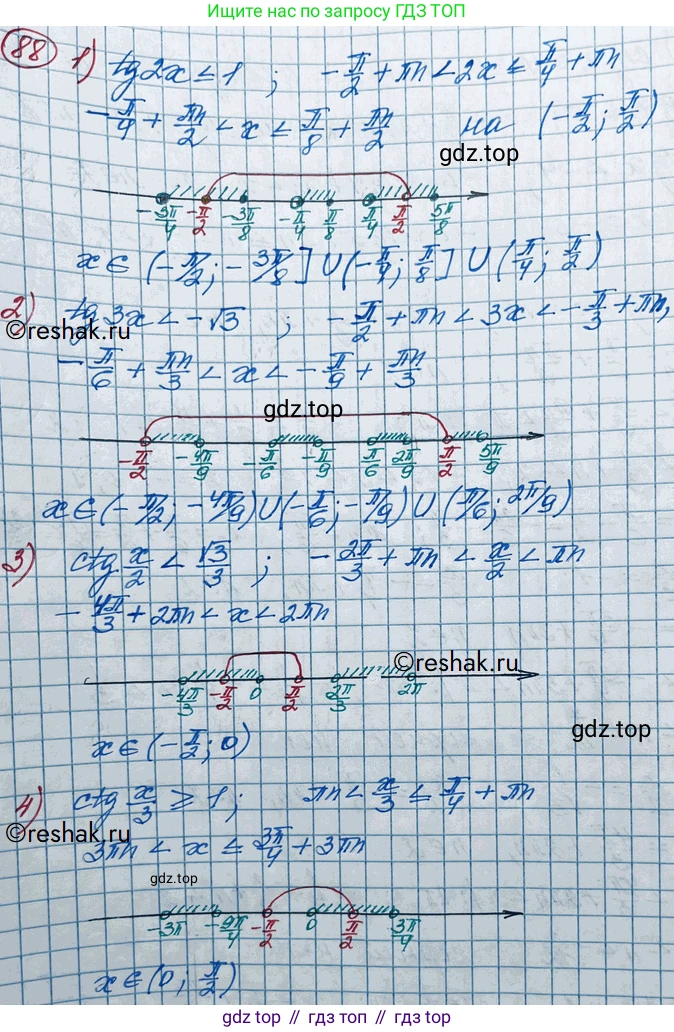 Ищите нас по запросу ГДЗ ТОП
88
1) tg2x ≤ 1 ; -π/2 + πn < 2x ≤ π/4 + πn
-π/4 + πn/2 < x ≤ π/8 + πn/2 на (-π/2; π/2)
gdz.top
-3π/4 -π/2 -3π/8 -π/4 π/8 π/4 π/2 5π/8
x ∈ (-π/2; -3π/8] ∪ (-π/4; π/8] ∪ (π/4; π/2)
2) tg3x < -√3 ; -π/2 + πn < 3x < -π/3 + πn,
©reshak.ru
-π/6 + πn/3 < x < -π/9 + πn/3
gdz.top
-π/2 -4π/9 -π/6 -π/9 π/6 2π/9 π/2 5π/9
x ∈ (-π/2; -4π/9) ∪ (-π/6; -π/9) ∪ (π/6; 2π/9)
3) ctg x/2 < √3/3 ; -2π/3 + πn < x/2 < πn
-4π/3 + 2πn < x < 2πn
©reshak.ru
-4π/3 -π/2 0 π/2 2π/3 2π
gdz.top
x ∈ (-π/2; 0)
4) ctg x/3 ≥ 1 ; πn < x/3 ≤ π/4 + πn
©reshak.ru
3πn < x ≤ 3π/4 + 3πn
gdz.top
-3π -9π/4 -π/2 0 π/2 3π/4
x ∈ (0; π/2)
gdz.top // гдз топ // гдз.топ